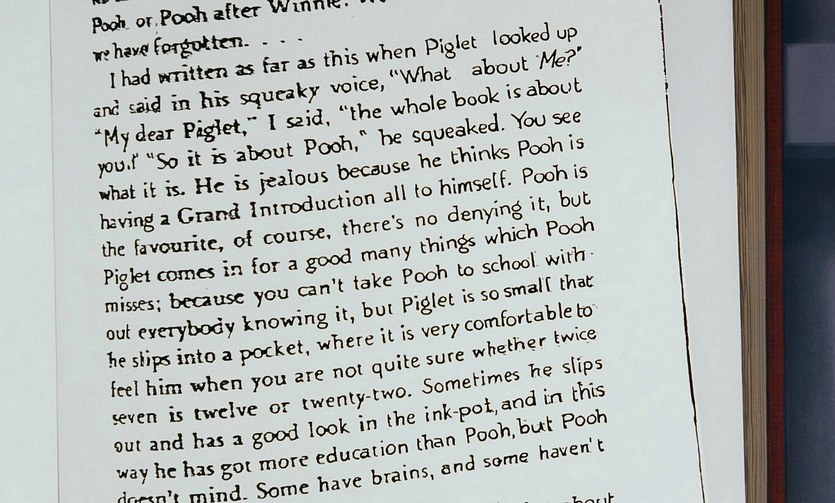 Pooh or Pooh after Winnie.
we have forgotten. . . .
I had written as far as this when Piglet looked up
and said in his squeaky voice, "What about Me?"
"My dear Piglet," I said, "the whole book is about
you." "So it is about Pooh," he squeaked. You see
what it is. He is jealous because he thinks Pooh is
having a Grand Introduction all to himself. Pooh is
the favourite, of course, there's no denying it, but
Piglet comes in for a good many things which Pooh
misses; because you can't take Pooh to school with-
out everybody knowing it, but Piglet is so small that
he slips into a pocket, where it is very comfortable to
feel him when you are not quite sure whether twice
seven is twelve or twenty-two. Sometimes he slips
out and has a good look in the ink-pot, and in this
way he has got more education than Pooh, but Pooh
doesn't mind. Some have brains, and some haven't
about